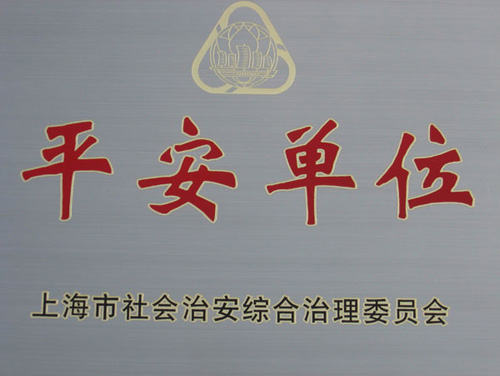 平安单位
上海市社会治安综合治理委员会